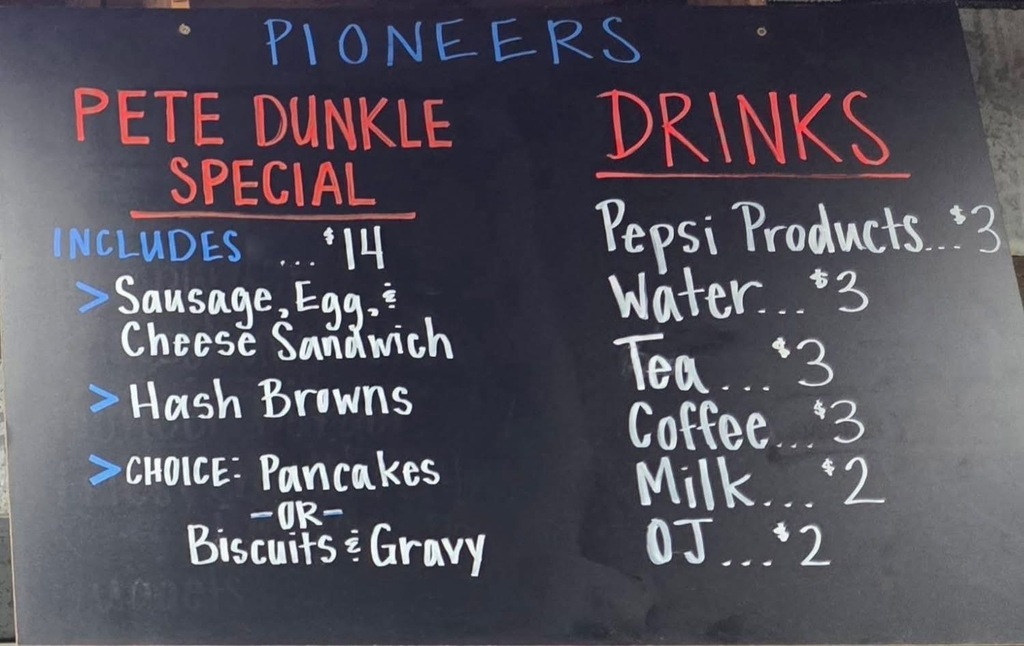 PIONEERS
PETE DUNKLE
SPECIAL
INCLUDES ... $14
> Sausage, Egg, &
Cheese Sandwich
> Hash Browns
> CHOICE: Pancakes
-OR-
Biscuits & Gravy
DRINKS
Pepsi Products...$3
Water...$3
Tea...$3
Coffee...$3
Milk...$2
OJ...$2